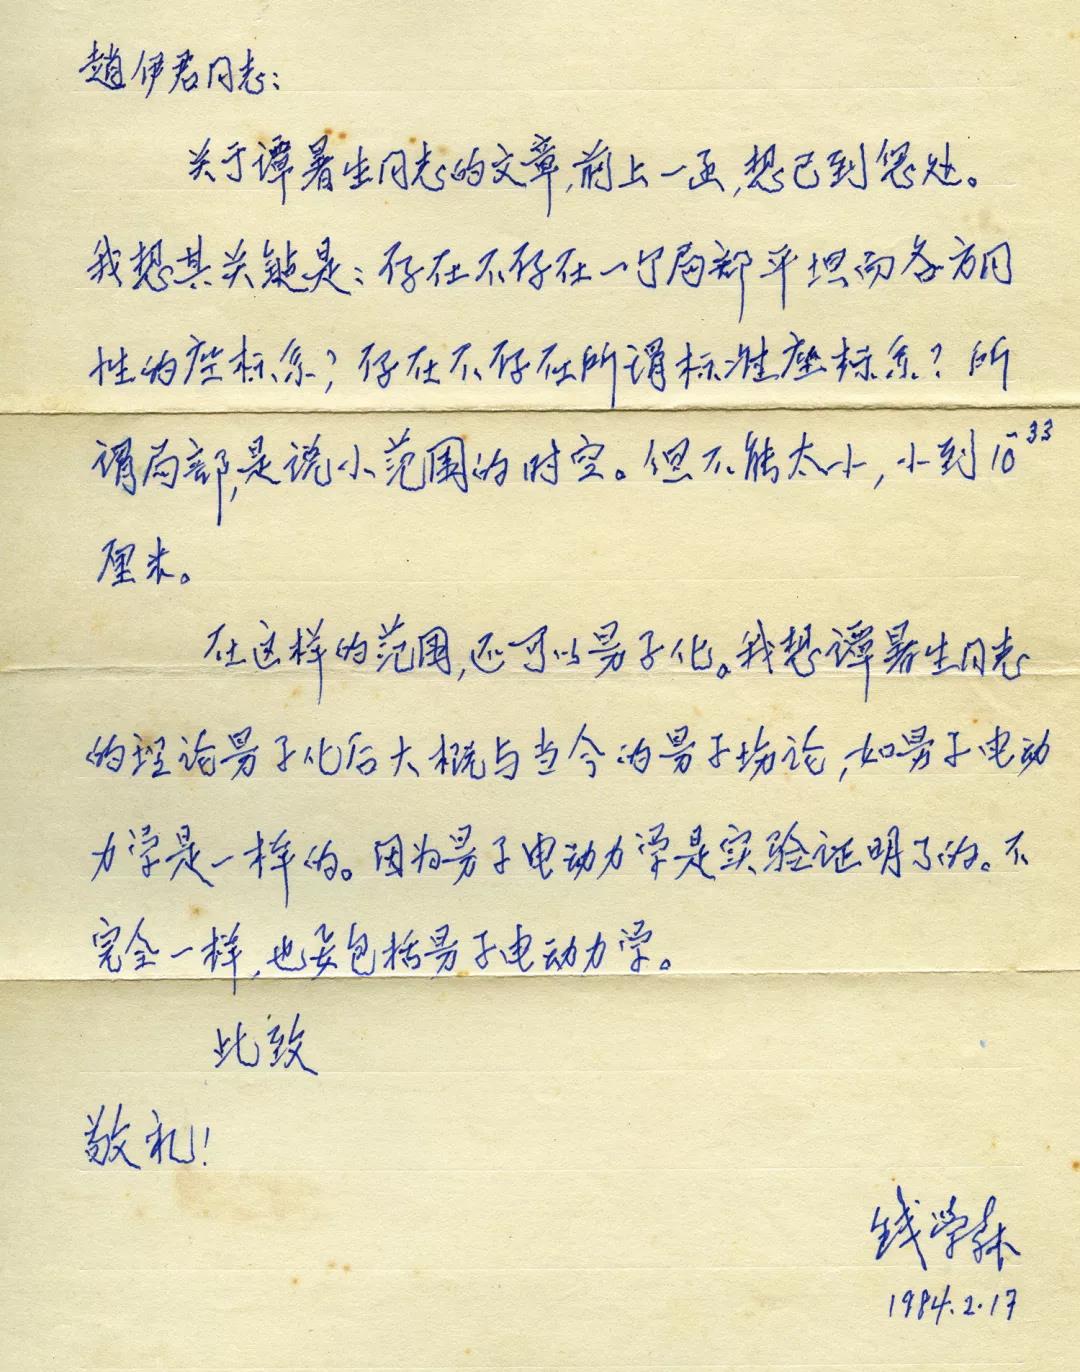 赵伊君同志：
关于谭暑生同志的文章，前上一函，想已到您处。
我想其关键是：存在不存在一个局部平坦而各方同
性的座标系？存在不存在所谓标准座标系？所
谓局部，是说小范围的时空。但不能太小，小到10⁻³³
厘米。
在这样的范围，还可以量子化。我想谭暑生同志
的理论量子化后大概与当今的量子场论，如量子电动
力学是一样的。因为量子电动力学是实验证明了的。不
完全一样，也要包括量子电动力学。
此致
敬礼！
钱学森
1984.2.17